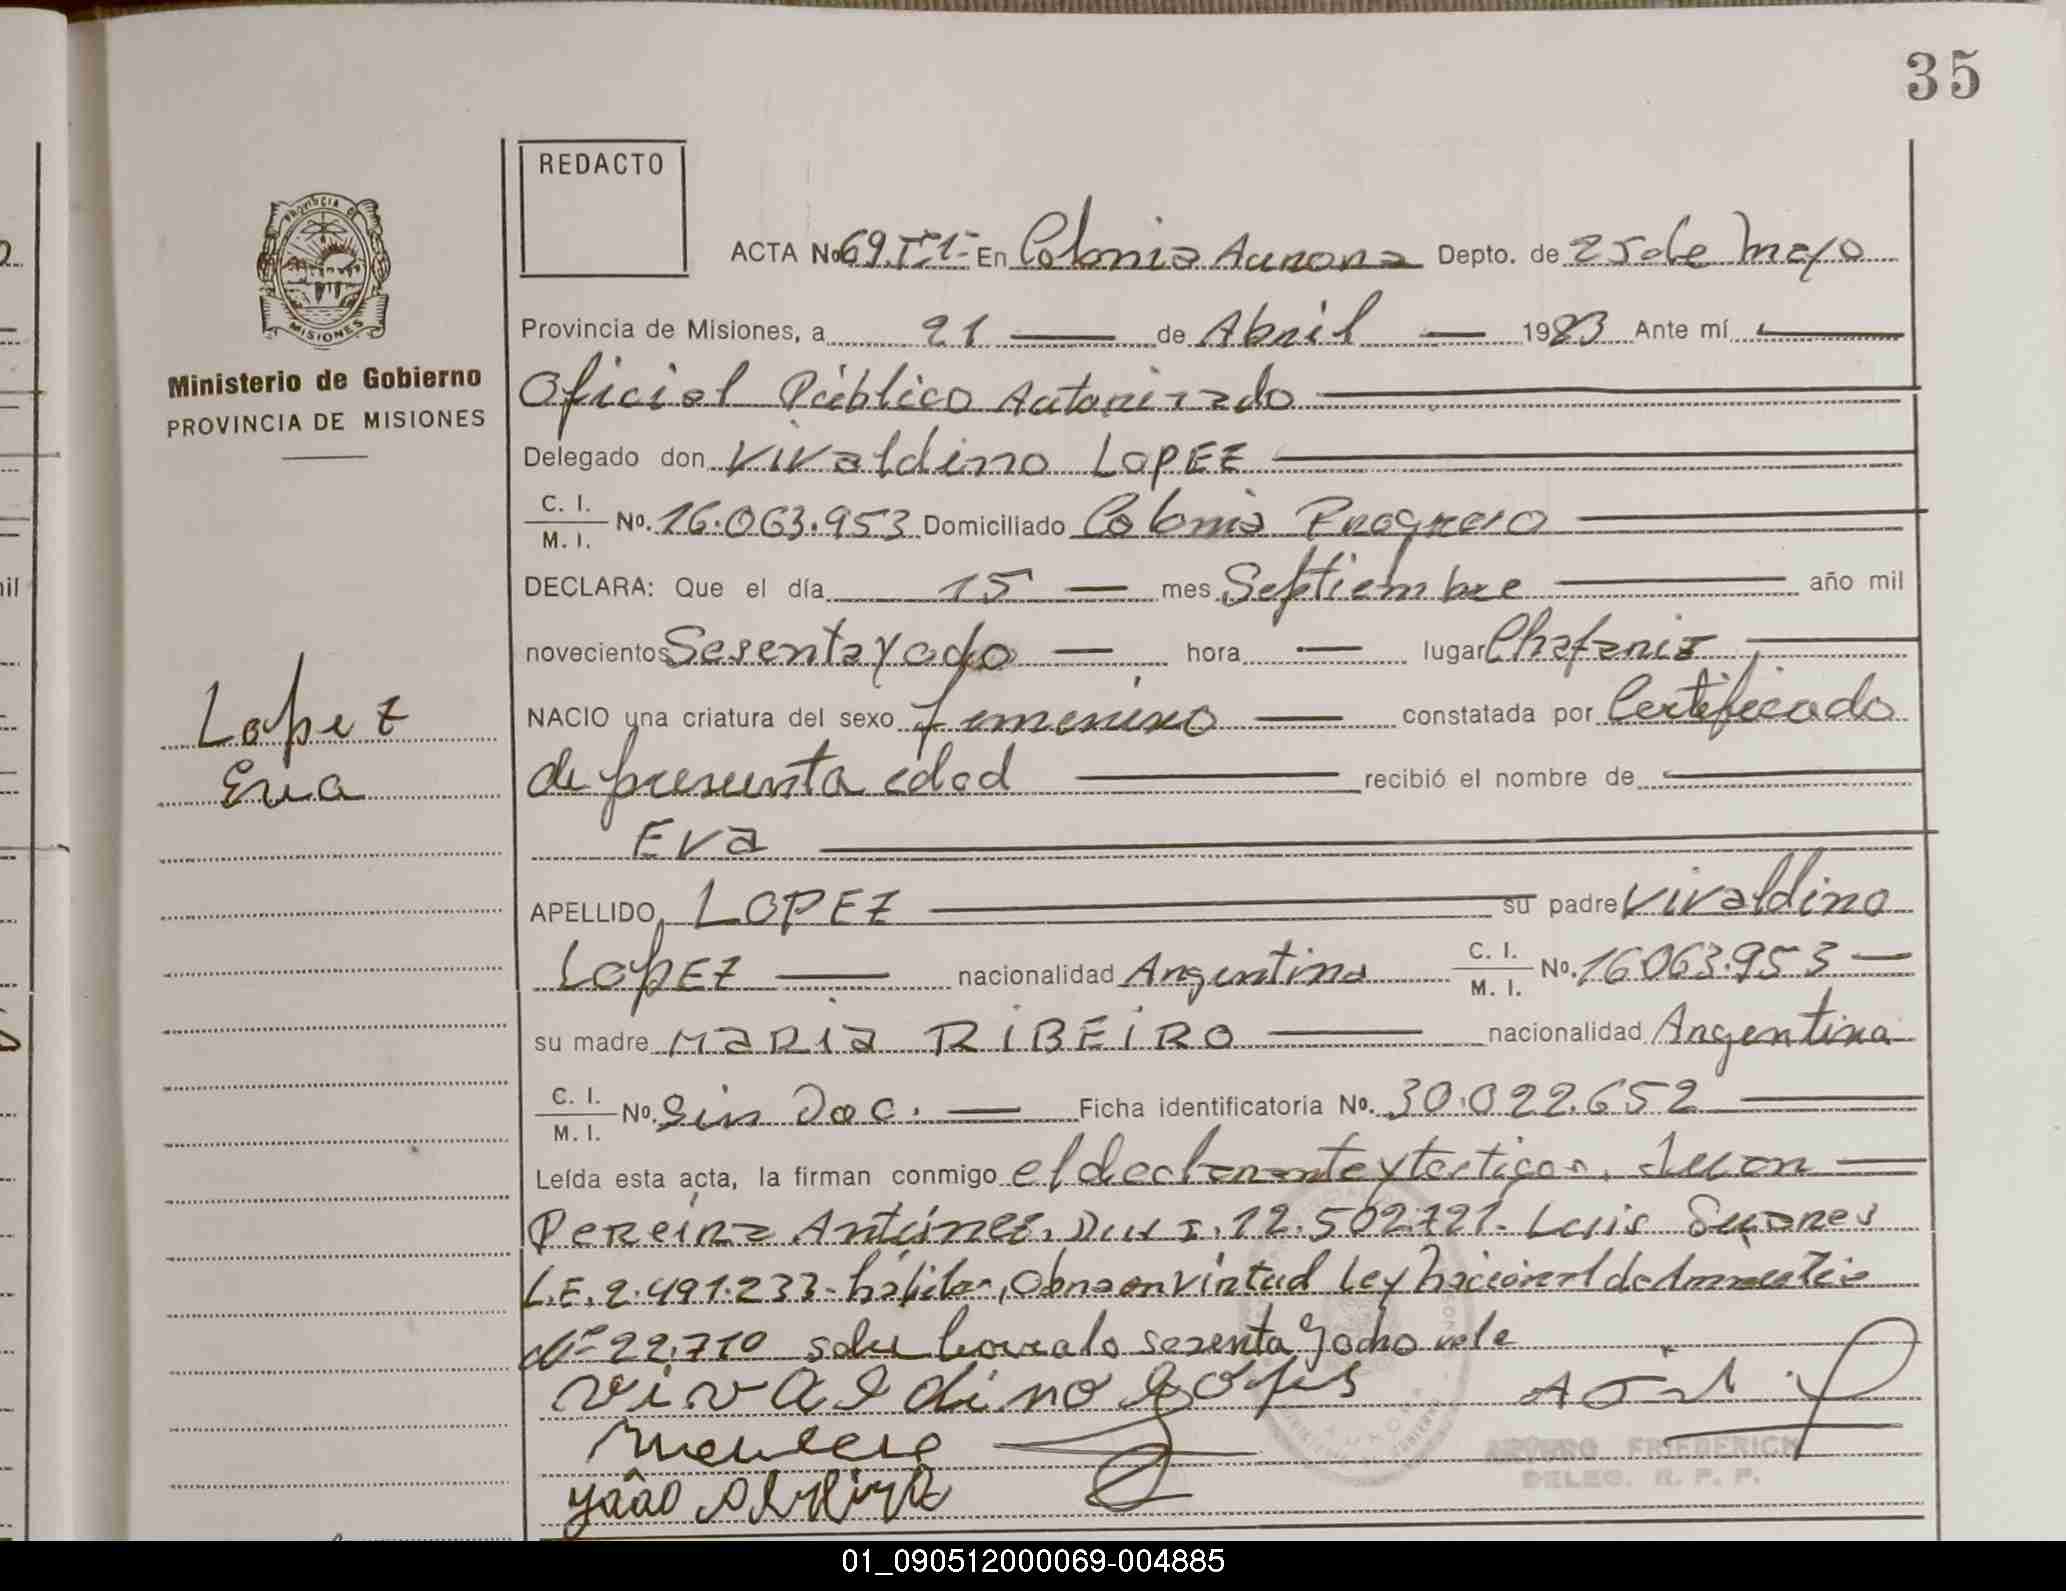 35
REDACTO
PROVINCIA DE
MISIONES
ACTA No 69.Tº1- En Colonia Aurora Depto. de 25 de Mayo
Provincia de Misiones, a 21 — de Abril — 1983 Ante mí —
Ministerio de Gobierno
PROVINCIA DE MISIONES
Oficial Público Autorizado —
Delegado don Vivaldino LOPEZ —
C. I.
M. I. No. 16.063.953 Domiciliado Colonia Progreso —
DECLARA: Que el día 15 — mes Septiembre — año mil
novecientos Sesentayocho — hora — lugar Chafariz —
NACIO una criatura del sexo femenino — constatada por Certificado
Lopez
Eva
de presunta edad — recibió el nombre de —
Eva —
APELLIDO LOPEZ — su padre Vivaldino
LopEZ — nacionalidad Argentina C. I.
M. I. No. 16063.953 —
su madre MaRia RiBEiRO — nacionalidad Argentina
C. I.
M. I. No. Sin Doc. — Ficha identificatoria No. 30.022.652 —
Leída esta acta, la firman conmigo el declarante y testigos, Juan —
Pereira Antúnez, DNI. 12.502.721. Luis Suarez
L.E. 2.491.233- hábiles, Obra en virtud Ley Nacional de Amnistía
Nº 22.710 sobre borrado sesenta y ocho vale
vivaldino Lopes
João
ARTURO FRIEDERICH
DELEG. R. P. P.
01_090512000069-004885